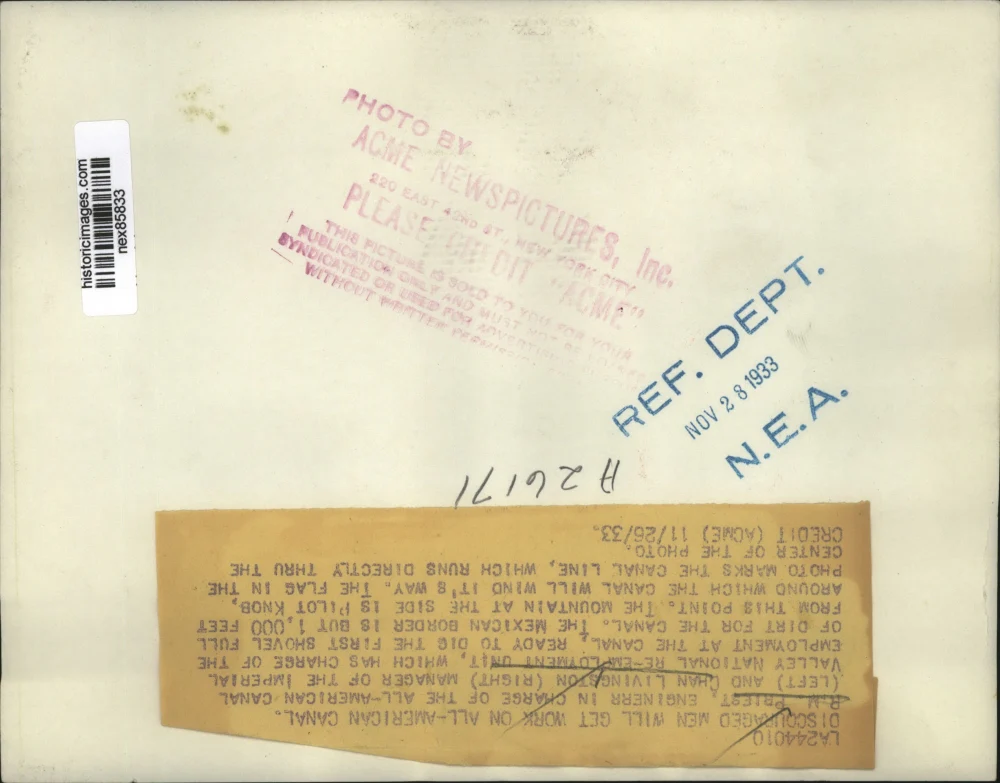 historicimages.com
nex85833
PHOTO BY
ACME NEWSPICTURES, Inc.
220 EAST 42ND ST., NEW YORK CITY
PLEASE CREDIT "ACME"
THIS PICTURE IS SOLD TO YOU FOR YOUR
PUBLICATION ONLY AND MUST NOT BE
SYNDICATED OR USED FOR
WITHOUT WRITTEN
REF. DEPT.
NOV 28 1933
N.E.A.
A26171
LA244010
DISCOURAGED MEN WILL GET WORK ON ALL-AMERICAN CANAL.
R.M. PRIEST, ENGINERN IN CHARGE OF THE ALL-AMERICAN CANAL
(LEFT) AND CHAN LIVINGSTON (RIGHT) MANAGER OF THE IMPERIAL
VALLEY NATIONAL RE-EMPLOYMENT UNIT, WHICH HAS CHARGE OF THE
EMPLOYMENT AT THE CANAL, READY TO DIG THE FIRST SHOVEL FULL
OF DIRT FOR THE CANAL. THE MEXICAN BORDER IS BUT 1,000 FEET
FROM THIS POINT. THE MOUNTAIN AT THE SIDE IS PILOT KNOB,
AROUND WHICH THE CANAL WILL WIND IT'S WAY. THE FLAG IN THE
PHOTO MARKS THE CANAL LINE, WHICH RUNS DIRECTLY THRU THE
CENTER OF THE PHOTO.
CREDIT (ACME) 11/26/33.